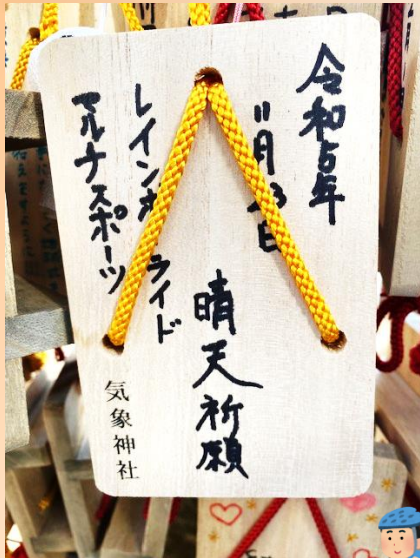 令和5年
11月 日
晴天祈願
レイン ライド
マルナスポーツ
気象神社